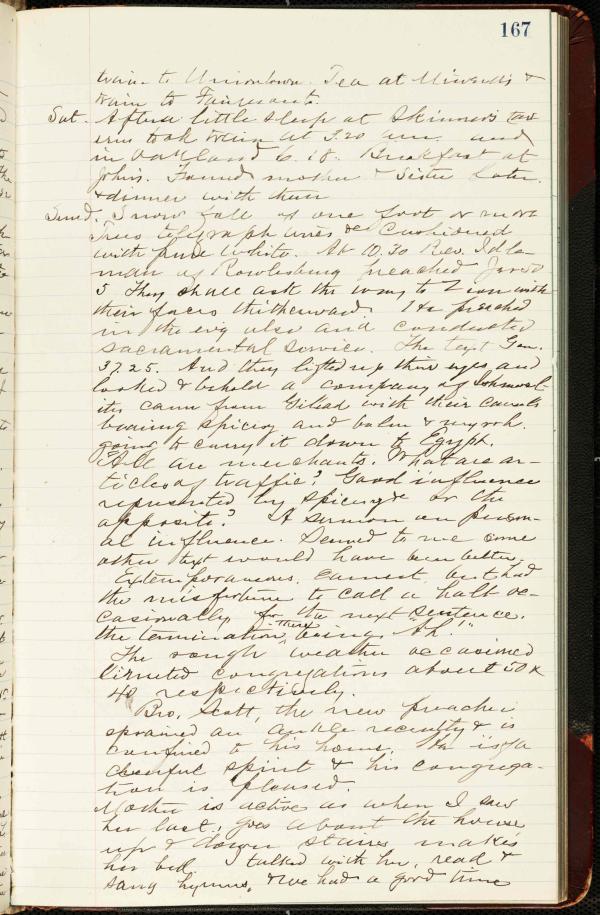 167
train to Uniontown. Tea at &
train to Fairmont.
Sat. After a little sleep at Skinner's tav
ern took train at 3.20 am. and
in Oakland 6.18. Breakfast at
John's. Found mother & Sister later.
& dinner with them
Sund. Snow fall of one foot or more
Trees telegraph wires &c cushioned
with pure white. At 10,30 Rev. Idle-
man of Rowlesburg preached Jer 50
5 They shall ask the way to Zion with
their faces thitherward. He preached
in the evg also and conducted
sacramental service. The text Gen.
37.25. And they lifted up their eyes and
looked & behold a company of Ishmael-
ites came from Gilead with their camels
bearing spicery and balm & myrrh.
going to carry it down to Egypt.
"All are merchants. What are ar-
ticles of traffic? Good influence
represented by spicery or the
opposite? A sermon on person-
al influence. Seemed to me some
other text would have been better.
Extemporaneous, earnest but had
the misfortune to call a halt oc-
casionally for the next sentence.
the termination there being "Ah!"
The rough weather occasioned
limited congregations about 50 &
40 respectively.
Bro. Scott, the new preacher
sprained an ankle recently & is
confined to his home. He is of a
cheerful spirit & his congrega-
tion is pleased.
Mother is active as when I saw
her last, goes about the house
up & down stairs makes
her bed. I talked with her, read &
sang hymns, & we had a good time